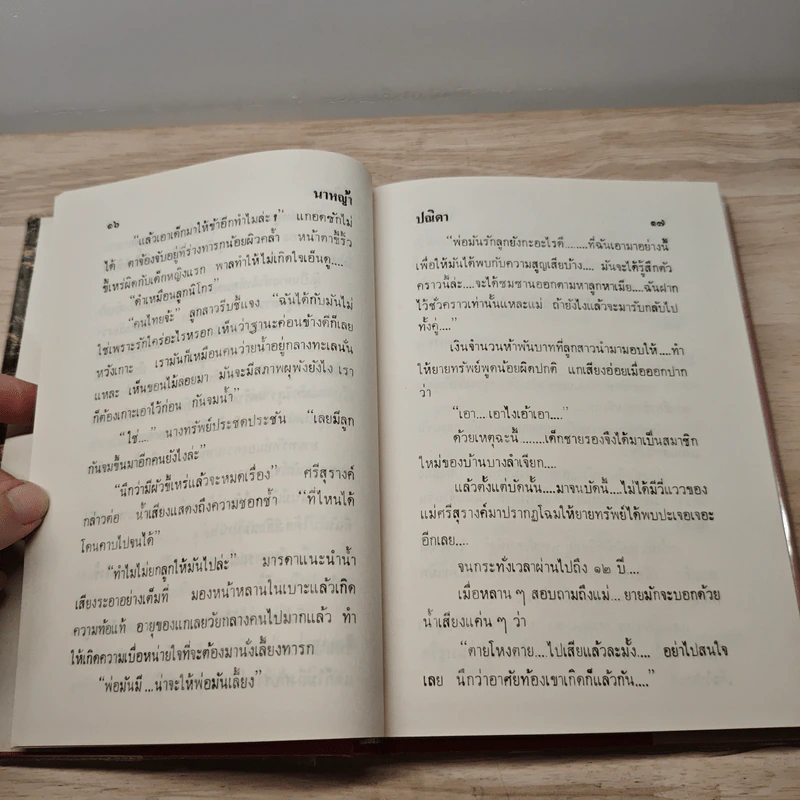 นาหญ้า
๑๖
"แล้วเอาเด็กมาให้ข้าอีกทำไมล่ะ ?" แกอดซักไม่
ได้ ตาจ้องจับอยู่ที่ร่างทารกน้อยผิวคล้ำ หน้าตาขี้ริ้ว
ขี้เหร่ผิดกับเด็กหญิงแรก พาลทำให้ไม่เกิดใจเอ็นดู....
"ดำเหมือนลูกนิโกร"
"คนไทยจ้ะ" ลูกสาวรีบชี้แจง "ฉันได้กับมันไม่
ใช่เพราะรักใคร่อะไรหรอก เห็นว่าฐานะค่อนข้างดีก็เลย
หวังเกาะ เรามันก็เหมือนคนว่ายน้ำอยู่กลางทะเลนั่น
แหละ เห็นขอนไม้ลอยมา มันจะมีสภาพผุพังยังไง เรา
ก็ต้องเกาะเอาไว้ก่อน กันจมน้ำ"
"ใช่...." นางทรัพย์ประชดประชัน "เลยมีลูก
กันจมขึ้นมาอีกคนยังไงล่ะ"
"นึกว่ามีผัวขี้เหร่แล้วจะหมดเรื่อง" ศรีสุรางค์
กล่าวต่อ น้ำเสียงแสดงถึงความชอกช้ำ "ที่ไหนได้
โดนคาบไปจนได้"
"ทำไมไม่ยกลูกให้มันไปล่ะ" มารดาแนะนำน้ำ
เสียงระอาอย่างเต็มที่ มองหน้าหลานในเบาะแล้วเกิด
ความท้อแท้ อายุของแกเลยวัยกลางคนไปมากแล้ว ทำ
ให้เกิดความเบื่อหน่ายใจที่จะต้องมานั่งเลี้ยงทารก
"พ่อมันมี ...น่าจะให้พ่อมันเลี้ยง"
ปณิตา
๑๗
"พ่อมันรักลูกยังกะอะไรดี........ที่ฉันเอามาอย่างนี้
เพื่อให้มันได้พบกับความสูญเสียบ้าง.... มันจะได้รู้สึกตัว
คราวนี้ล่ะ....จะได้ซมซานออกตามหาลูกหาเมีย....ฉันฝาก
ไว้ชั่วคราวเท่านั้นแหละแม่ ถ้ายังไงแล้วจะมารับกลับไป
ทั้งคู่...."
เงินจำนวนห้าพันบาทที่ลูกสาวนำมามอบให้....ทำ
ให้ยายทรัพย์พูดน้อยผิดปกติ แกเสียงอ่อยเมื่อออกปาก
ว่า
"เอา... เอาไงเอ้าเอา...."
ด้วยเหตุฉะนี้ ........เด็กชายรองจึงได้มาเป็นสมาชิก
ใหม่ของบ้านบางลำเจียก....
แล้วตั้งแต่บัดนั้น....มาจนบัดนี้....ไม่ได้มีวี่แววของ
แม่ศรีสุรางค์มาปรากฏโฉมให้ยายทรัพย์ได้พบปะเจอเจอะ
อีกเลย....
จนกระทั่งเวลาผ่านไปถึง ๑๒ ปี....
เมื่อหลาน ๆ สอบถามถึงแม่... ยายมักจะบอกด้วย
น้ำเสียงแค่น ๆ ว่า
"ตายโหงตาย....ไปเสียแล้วละมั้ง.... อย่าไปสนใจ
เลย นึกว่าอาศัยท้องเขาเกิดก็แล้วกัน...."